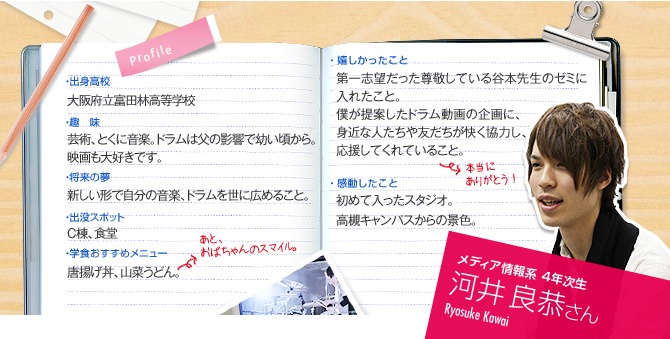 Profile
・出身高校
大阪府立富田林高等学校
・趣　味
芸術、とくに音楽。ドラムは父の影響で幼い頃から。
映画も大好きです。
・将来の夢
新しい形で自分の音楽、ドラムを世に広めること。
・出没スポット
C棟、食堂
・学食おすすめメニュー
唐揚げ丼、山菜うどん。
あと、
おばちゃんのスマイル。
・嬉しかったこと
第一志望だった尊敬している谷本先生のゼミに
入れたこと。
僕が提案したドラム動画の企画に、
身近な人たちや友だちが快く協力し、
応援してくれていること。
本当に
ありがとう！
・感動したこと
初めて入ったスタジオ。
高槻キャンパスからの景色。
メディア情報系 4年次生
河井 良恭さん
Ryosuke Kawai